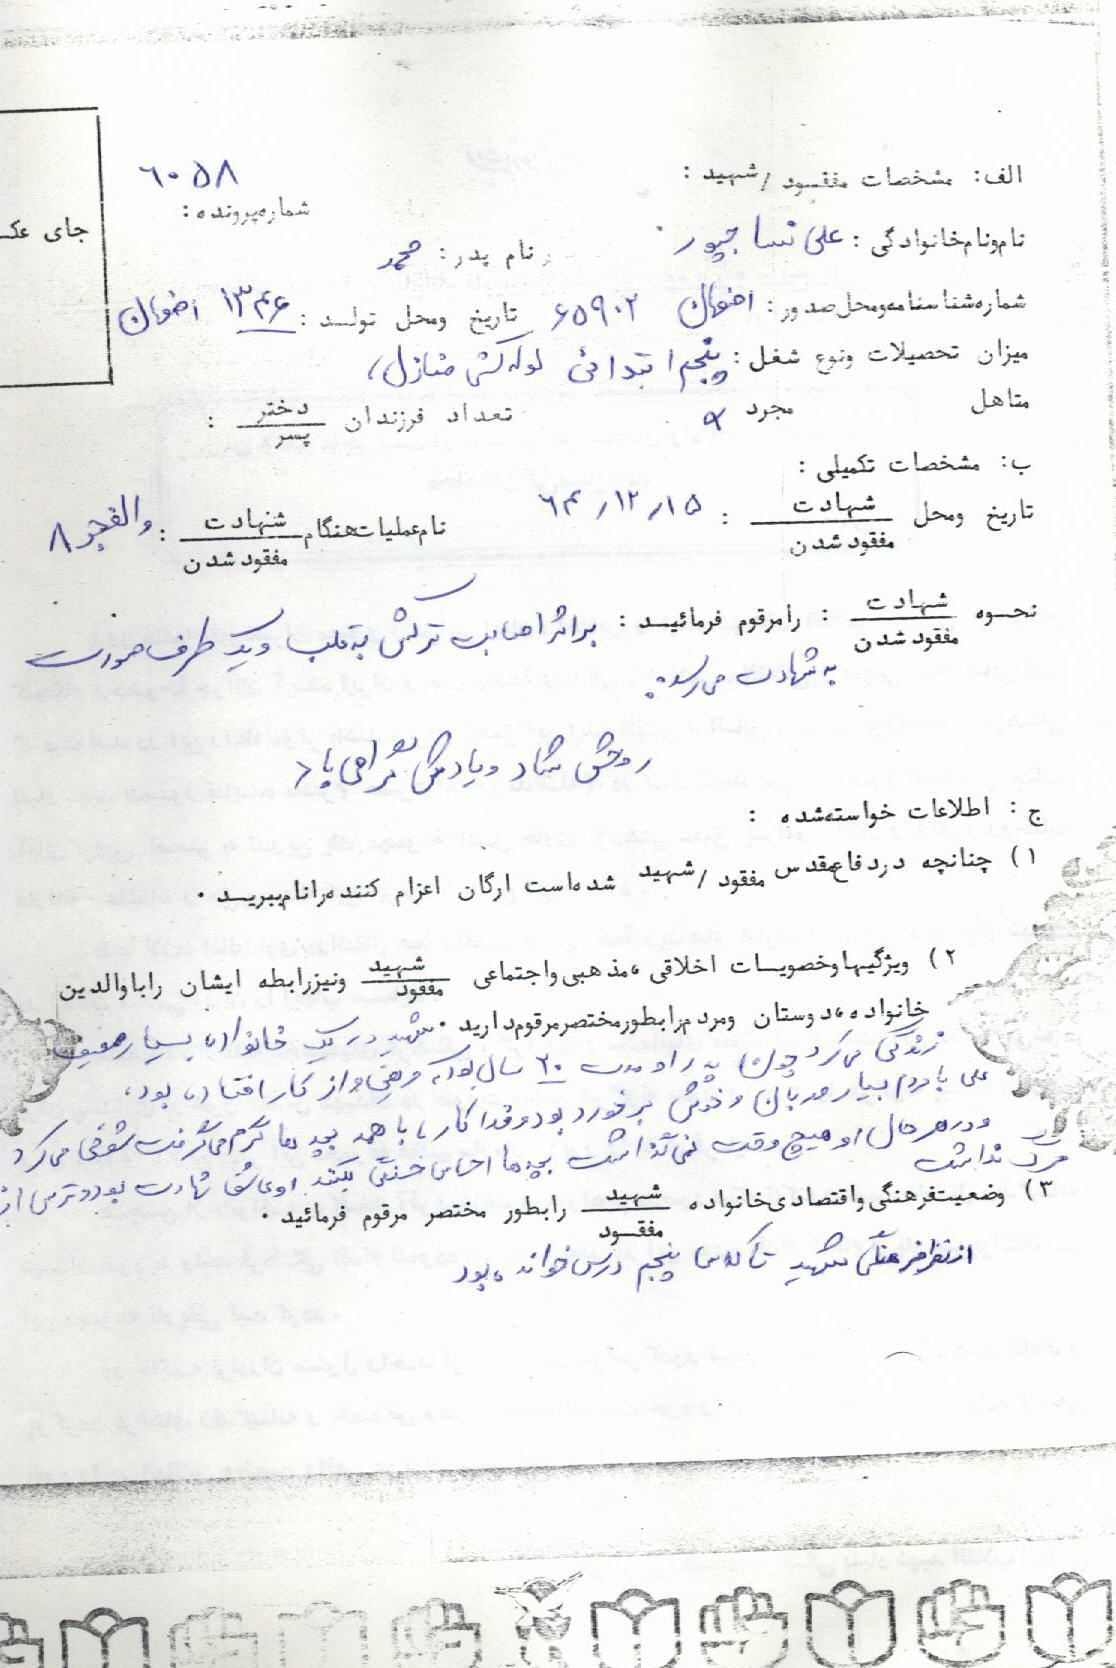 الف: مشخصات مفقود / شهید :
۶۰۵۸
شماره پرونده :
جای عک
نام و نام خانوادگی : علی نساجپور
نام پدر : محمد
شماره شناسنامه و محل صدور : اصفهان ۶۵۹۰۲
تاریخ و محل تولد : ۱۳۴۶ اصفهان
میزان تحصیلات و نوع شغل : پنجم ابتدائی لوله کش منازل
متاهل مجرد تعداد فرزندان دختر / پسر :
ب: مشخصات تکمیلی :
تاریخ و محل شهادت / مفقود شدن : ۶۴/۱۲/۱۵
نام عملیات هنگام شهادت / مفقود شدن : والفجر ۸
نحوه شهادت / مفقود شدن : را مرقوم فرمائید : براثر اصابت ترکش به قلب و یک طرف صورت
به شهادت می رسد .
روحش شاد و یادش گرامی باد
ج : اطلاعات خواسته شده :
۱) چنانچه در دفاع مقدس مفقود / شهید شده است ارگان اعزام کننده را نام ببرید .
۲) ویژگیها و خصوصیات اخلاقی ، مذهبی و اجتماعی شهید / مفقود و نیز رابطه ایشان را با والدین
خانواده ، دوستان و مردم را بطور مختصر مرقوم دارید . شهید در یک خانواده بسیار ضعیف
زندگی می کرد چون پدر او مدت ۲۰ سال بود که مریض و از کار افتاده بود ،
علی با مردم بسیار مهربان و خوش برخورد بود و فدا کار ، با همه بچه ها گرم می گرفت شوخی می کرد
و در هر حال او هیچ وقت نمی گذاشت بچه ها احساس خستگی بکنند او عاشق شهادت بود و ترس از
مرگ نداشت
۳) وضعیت فرهنگی و اقتصادی خانواده شهید / مفقود را بطور مختصر مرقوم فرمائید .
از نظر فرهنگی شهید تا کلاس پنجم درس خوانده بود